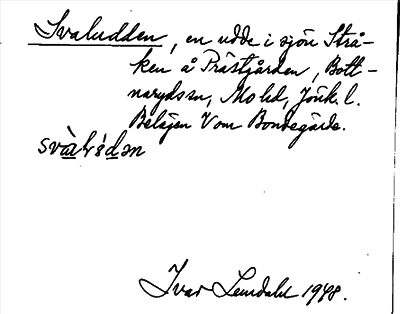 Svaludden, en udde i sjön Strå-
ken å Prästgården, Bott-
narydssn, Mo hd, Jönk. l.
Belägen V om Bondegärde.
Ivar Lundahl 1948.